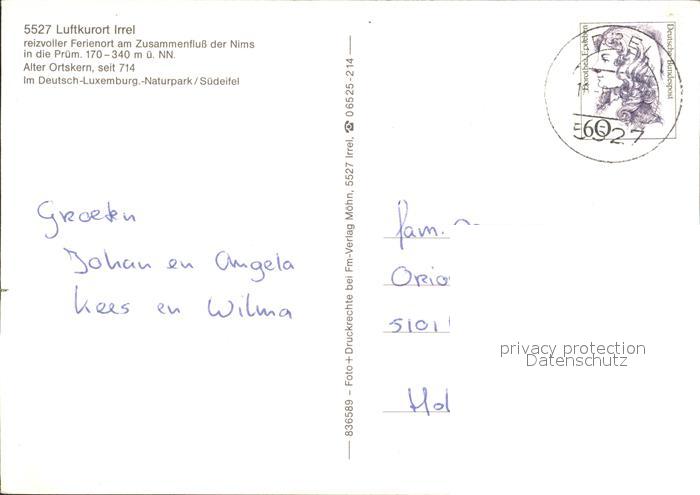 5527 Luftkurort Irrel
reizvoller Ferienort am Zusammenfluß der Nims
in die Prüm. 170–340 m ü. NN.
Alter Ortskern, seit 714
Im Deutsch-Luxemburg.-Naturpark/Südeifel
Groeten
Johan en Angela
Kees en Wilma
836589 – Foto+Druckrechte bei Fm-Verlag Möhn, 5527 Irrel, ☎ 06525-214
Deutsche Bundespost
60
5527
fam.
Orio
5101
Hol
privacy protection
Datenschutz